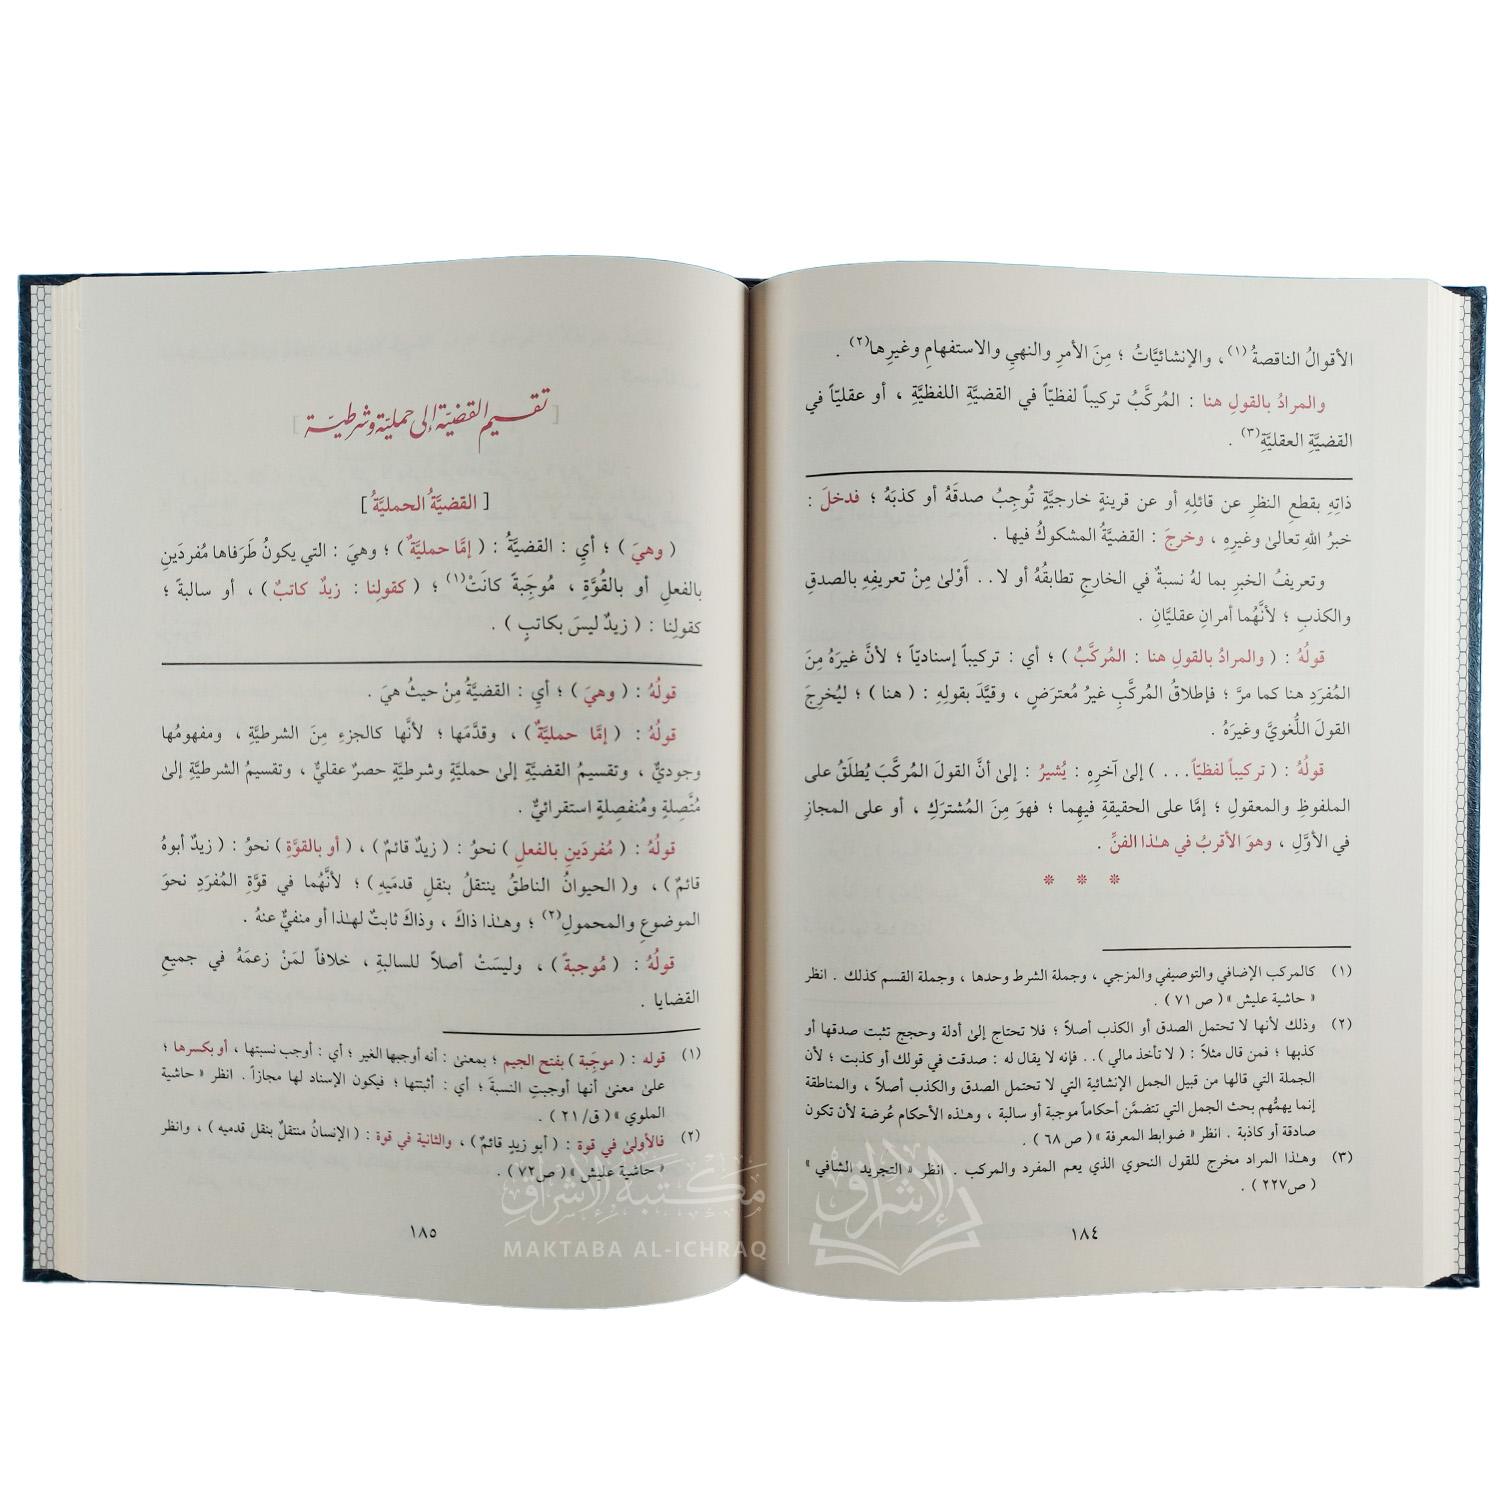 الأقوالُ الناقصةُ(١)، والإنشائيَّاتُ ؛ مِنَ الأمرِ والنهيِ والاستفهامِ وغيرِها(٢) .
والمرادُ بالقولِ هنا : المُركَّبُ تركيباً لفظيّاً في القضيَّةِ اللفظيَّةِ ، أو عقليّاً في
القضيَّةِ العقليَّةِ(٣) .
ذاتِهِ بقطعِ النظرِ عن قائلِهِ أو عن قرينةٍ خارجيَّةٍ تُوجِبُ صدقَهُ أو كذبَهُ ؛ فدخلَ :
خبرُ اللهِ تعالىٰ وغيرِهِ ، وخرجَ : القضيَّةُ المشكوكُ فيها .
وتعريفُ الخبرِ بما لهُ نسبةٌ في الخارجِ تطابقُهُ أو لا . . أَوْلىٰ مِنْ تعريفِهِ بالصدقِ
والكذبِ ؛ لأنَّهُما أمرانِ عقليَّانِ .
قولُهُ : ( والمرادُ بالقولِ هنا : المُركَّبُ ) ؛ أي : تركيباً إسناديّاً ؛ لأنَّ غيرَهُ مِنَ
المُفرَدِ هنا كما مرَّ ؛ فإطلاقُ المُركَّبِ غيرُ مُعترَضٍ ، وقيَّدَ بقولِهِ : ( هنا ) ؛ ليُخرِجَ
القولَ اللُّغويَّ وغيرَهُ .
قولُهُ : ( تركيباً لفظيّاً . . . ) إلىٰ آخرِهِ : يُشيرُ : إلىٰ أنَّ القولَ المُركَّبَ يُطلَقُ على
الملفوظِ والمعقولِ ؛ إمَّا على الحقيقةِ فيهِما ؛ فهوَ مِنَ المُشترَكِ ، أو على المجازِ
في الأوَّلِ ، وهوَ الأقربُ في هـٰذا الفنِّ .
* * *
(١) كالمركب الإضافي والتوصيفي والمزجي ، وجملة الشرط وحدها ، وجملة القسم كذلك . انظر
« حاشية عليش » ( ص ٧١ ) .
(٢) وذلك لأنها لا تحتمل الصدق أو الكذب أصلاً ؛ فلا تحتاج إلىٰ أدلة وحجج تثبت صدقها أو
كذبها ؛ فمن قال مثلاً : ( لا تأخذ مالي ) . . فإنه لا يقال له : صدقت في قولك أو كذبت ؛ لأن
الجملة التي قالها من قبيل الجمل الإنشائية التي لا تحتمل الصدق والكذب أصلاً ، والمناطقة
إنما يهمُّهم بحث الجمل التي تتضمَّن أحكاماً موجبة أو سالبة ، وهـٰذه الأحكام عُرضة لأن تكون
صادقة أو كاذبة . انظر « ضوابط المعرفة » ( ص ٦٨ ) .
(٣) وهـٰذا المراد مخرج للقول النحوي الذي يعم المفرد والمركب . انظر « التجريد الشافي »
( ص ٢٢٧ ) .
١٨٤
[ تقسيم القضيّة إلى حمليّة وشرطيّة ]
[ القضيَّةُ الحمليَّةُ ]
( وهيَ ) ؛ أي : القضيَّةُ : ( إمَّا حمليَّةٌ ) ؛ وهيَ : التي يكونُ طَرَفاها مُفردَينِ
بالفعلِ أو بالقُوَّةِ ، مُوجَبةً كانَتْ(١) ؛ ( كقولِنا : زيدٌ كاتبٌ ) ، أو سالبةً ؛
كقولِنا : ( زيدٌ ليسَ بكاتبٍ ) .
قولُهُ : ( وهيَ ) ؛ أيِ : القضيَّةُ مِنْ حيثُ هيَ .
قولُهُ : ( إمَّا حمليَّةٌ ) ، وقدَّمَها ؛ لأنَّها كالجزءِ مِنَ الشرطيَّةِ ، ومفهومُها
وجوديٌّ ، وتقسيمُ القضيَّةِ إلىٰ حمليَّةٍ وشرطيَّةٍ حصرٌ عقليٌّ ، وتقسيمُ الشرطيَّةِ إلىٰ
مُتَّصِلةٍ ومُنفصِلةٍ استقرائيٌّ .
قولُهُ : ( مُفردَينِ بالفعلِ ) نحوُ : ( زيدٌ قائمٌ ) ، ( أو بالقوَّةِ ) نحوُ : ( زيدٌ أبوهُ
قائمٌ ) ، و( الحيوانُ الناطقُ ينتقلُ بنقلِ قدمَيهِ ) ؛ لأنَّهُما في قوَّةِ المُفرَدِ نحوَ
الموضوعِ والمحمولِ(٢) ؛ وهـٰذا ذاكَ ، وذاكَ ثابتٌ لهـٰذا أو منفيٌّ عنهُ .
قولُهُ : ( مُوجبةً ) ، وليسَتْ أصلاً للسالبةِ ، خلافاً لمَنْ زعمَهُ في جميعِ
القضايا .
(١) قوله : ( موجَبة ) بفتح الجيم ؛ بمعنىٰ : أنه أوجبها الغير ؛ أي : أوجب نسبتها ، أو بكسرها ؛
علىٰ معنىٰ أنها أوجبتِ النسبةَ ؛ أي : أثبتتها ؛ فيكون الإسناد لها مجازاً . انظر « حاشية
الملوي » ( ق/ ٢١ ) .
(٢) فالأولىٰ في قوة : ( أبو زيدٍ قائمٌ ) ، والثانية في قوة : ( الإنسانُ منتقلٌ بنقل قدميه ) ، وانظر
« حاشية عليش » ( ص ٧٢ ) .
١٨٥
مكتبة الإشراق
MAKTABA AL-ICHRAQ
الإشراق